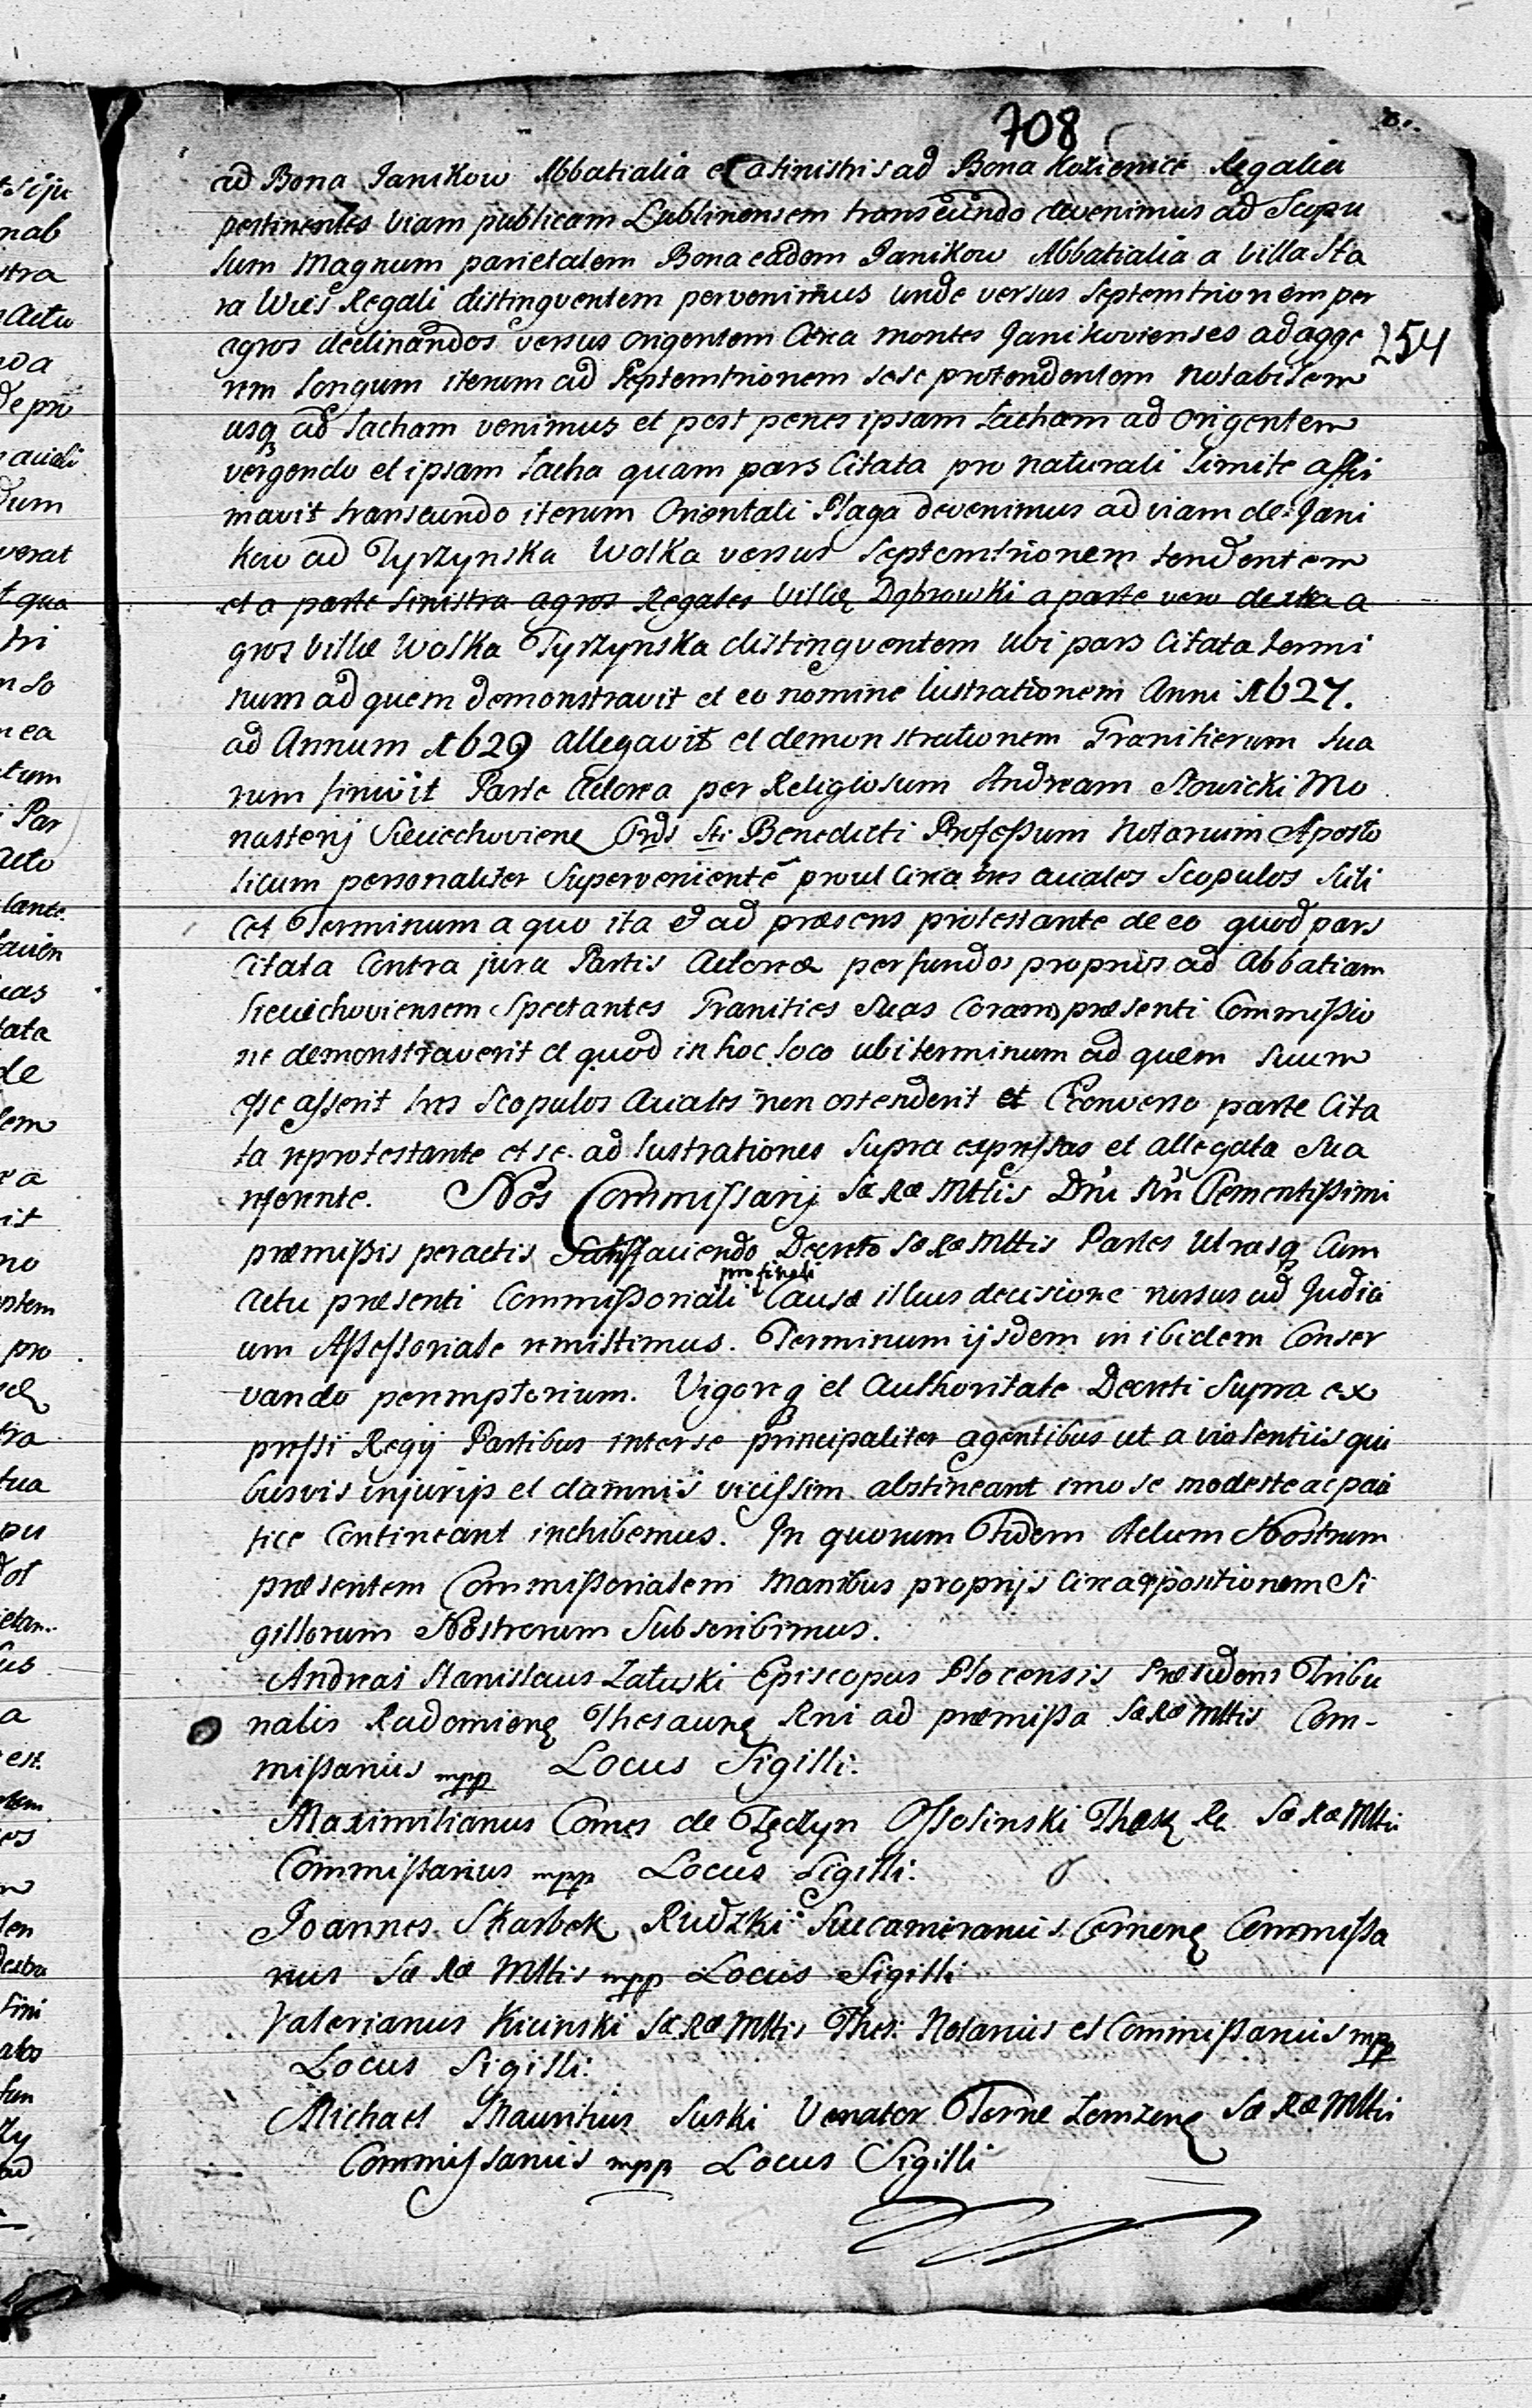 708
ad Bona Janikow Abbatialia et a sinistris ad Bona Kozienice Regalia
pertinentes viam publicam Lublinensem transeundo devenimus ad Scopu
lum Magnum parietalem Bona eadem Janikow Abbatialia a Villa Sta
ra Wies Regali distingventem pervenimus unde versus Septemtrionem per
agros declinandos versus origentem Circa montes Janikovienses ad agge
254
rem longum iterum ad Septemtrionem sese protendentem notabilem
usq ad Lacham venimus et post penes ipsam Lacham ad Origentem
vergendo et ipsam Lacha quam pars Citata pro naturali Limite affir
mavit transeundo iterum Orientali Plaga devenimus ad viam de Jani
kow ad Tyrzynska Wolka versus Septemtrionem tendentem
et a parte sinistra agros Regales Villæ Dąbrowki a parte vero dextra a
gros Villæ Wolka Tyrzynska distingventem Ubi pars Citata termi
num ad quem demonstravit et eo nomine lustrationem Anni 1627.
ad Annum 1629 allegavit et demonstrationem Granitierum Sua
rum finivit Parte Actorea per Religiosum Andream Nowicki Mo
nasterij Sieciechoviene Ords Sti Benedicti Professum Notarium Aposto
licum personaliter Supervenientē prout Circa tres aciales Scopulos Scili
cet Terminum a quo ita et ad præsens protestante de eo quod pars
Citata Contra jura Partis Actoreæ per fundos proprios ad Abbatiam
Sieciechoviensem Spectantes Granities Suas Coram præsenti Commissio
ne demonstraverit et quod in hoc loco ubi terminum ad quem Suum
esse asserit tres Scopulos Aciales non ostenderit et Econverso parte Cita
ta reprotestante et se ad lustrationes Supra expressas et allegata Sua
referente. Nos Commissarij Sæ Ræ Mttis Dni Nri Clementissimi
præmissis peractis Satisfaciendo Decreto Sæ Ræ Mttis Partes Utrasq Cum
pro finali
Actu præsenti Commissoriali Causæ illius decisione rursus ad Judici
um Assessoriale remittimus. Terminum ijsdem in ibidem Conser
vando peremptorium. Vigoreq et Authoritate Decreti Supra ex
pressi Regij Partibus inter se principaliter agentibus ut a violentiis qui
busvis injurijs et damnis vicissim abstineant imo se modeste ac paci
fice Contineant inhibemus. In quorum Fidem Actum Nostrum
præsentem Commissorialem Manibus proprijs Circa appositionem Si
gillorum Nostrorum Subscribimus.
Andreas Stanislaus Załuski Episcopus Plocensis Præsidens Tribu
nalis Radomiene Thesaure Rni ad præmissa Sæ Ræ Mttis Com-
missarius mpp Locus Sigilli:
Maximilianus Comes de Tęczyn Ossolinski Sæ Ræ Mttis
Commissarius mpp Locus Sigilli:
Joannes Skarbek Rudzki Succamerarius Cernene Commissa
rius Sæ Ræ Mttis mpp Locus Sigilli
Valerianus Kicinski Sæ Ræ Mttis Thes: Notarius et Commissarius mpp
Locus Sigilli:
Michael Mauritius Suski Venator Terræ Lomzene Sæ Ræ Mttis
Commissarius mpp Locus Sigilli